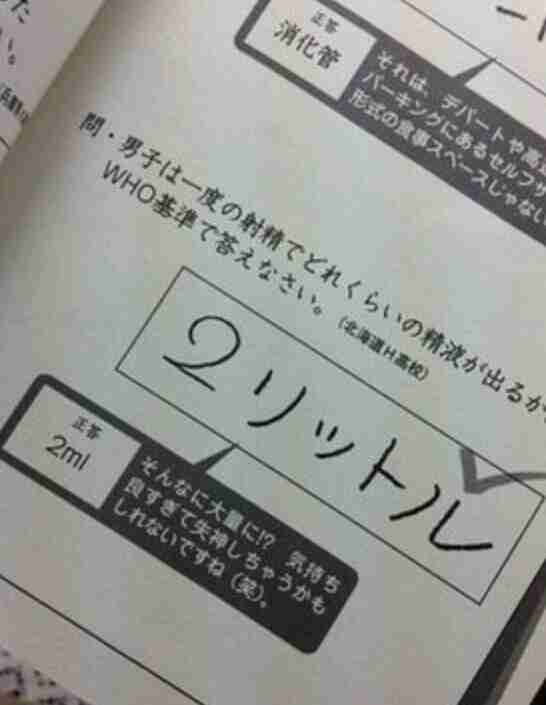 た
い。
正答
消化管
それは、デパートや高速
パーキングにあるセルフサ
形式の食事スペースじゃない
問・男子は一度の射精でどれくらいの精液が出るか、
WHO基準で答えなさい。(北海道H高校)
2リットル
正答
2ml
そんなに大量に!? 気持ち
良すぎて失神しちゃうかも
しれないですね(笑)。